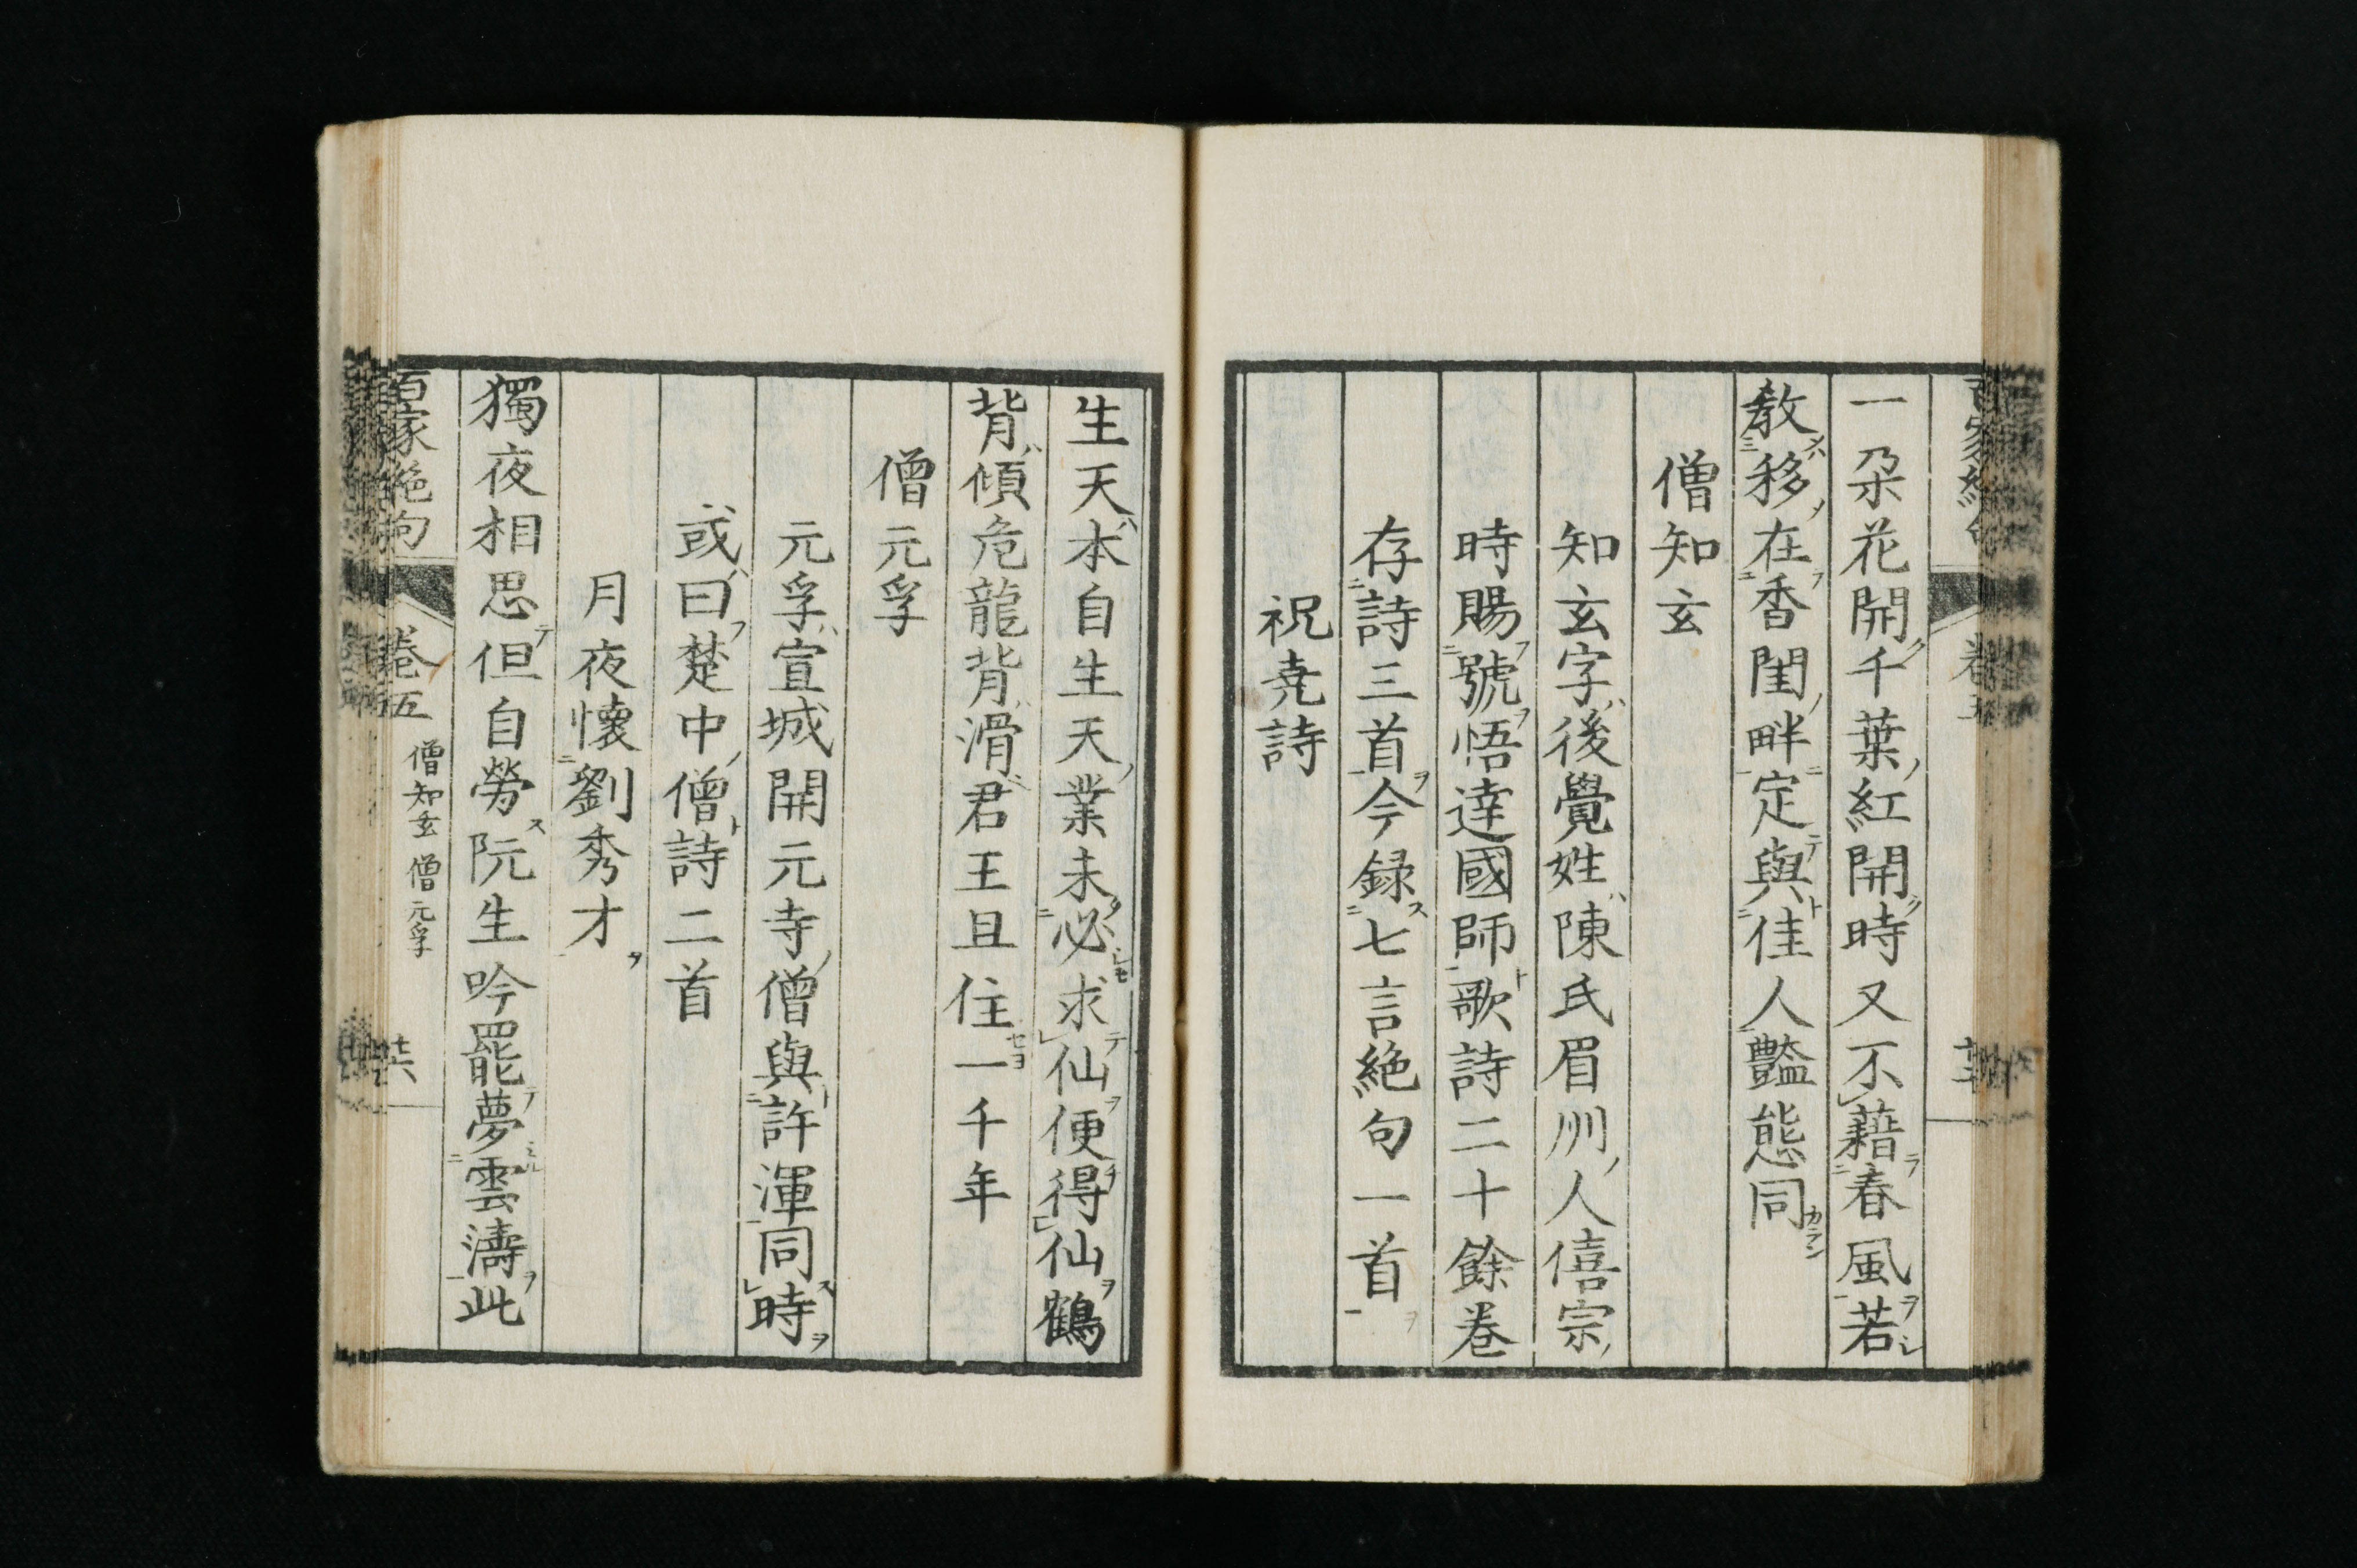 一朶花開千葉紅開時又不藉春風若
教移在香閨畔定與佳人豔態同
僧知玄
知玄字後覺姓陳氏眉州人僖宗
時賜號悟達國師歌詩二十餘卷
存詩三首今録七言絶句一首
祝堯詩
生天本自生天業未必求仙便得仙鶴
背傾危龍背滑君王且住一千年
僧元孚
元孚宣城開元寺僧與許渾同時
或曰楚中僧詩二首
月夜懷劉秀才
獨夜相思但自勞阮生吟罷夢雲濤此
百家絶句 卷五 僧知玄 僧元孚 廿六